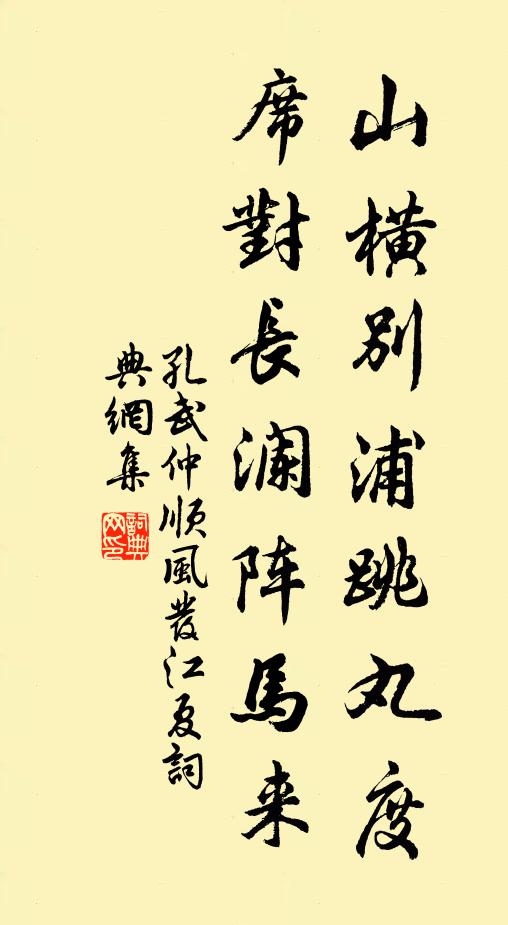 山橫別浦跳丸度
席對長瀾阵馬来
孔武仲順風發江夏詞
典網集
詞典
网印